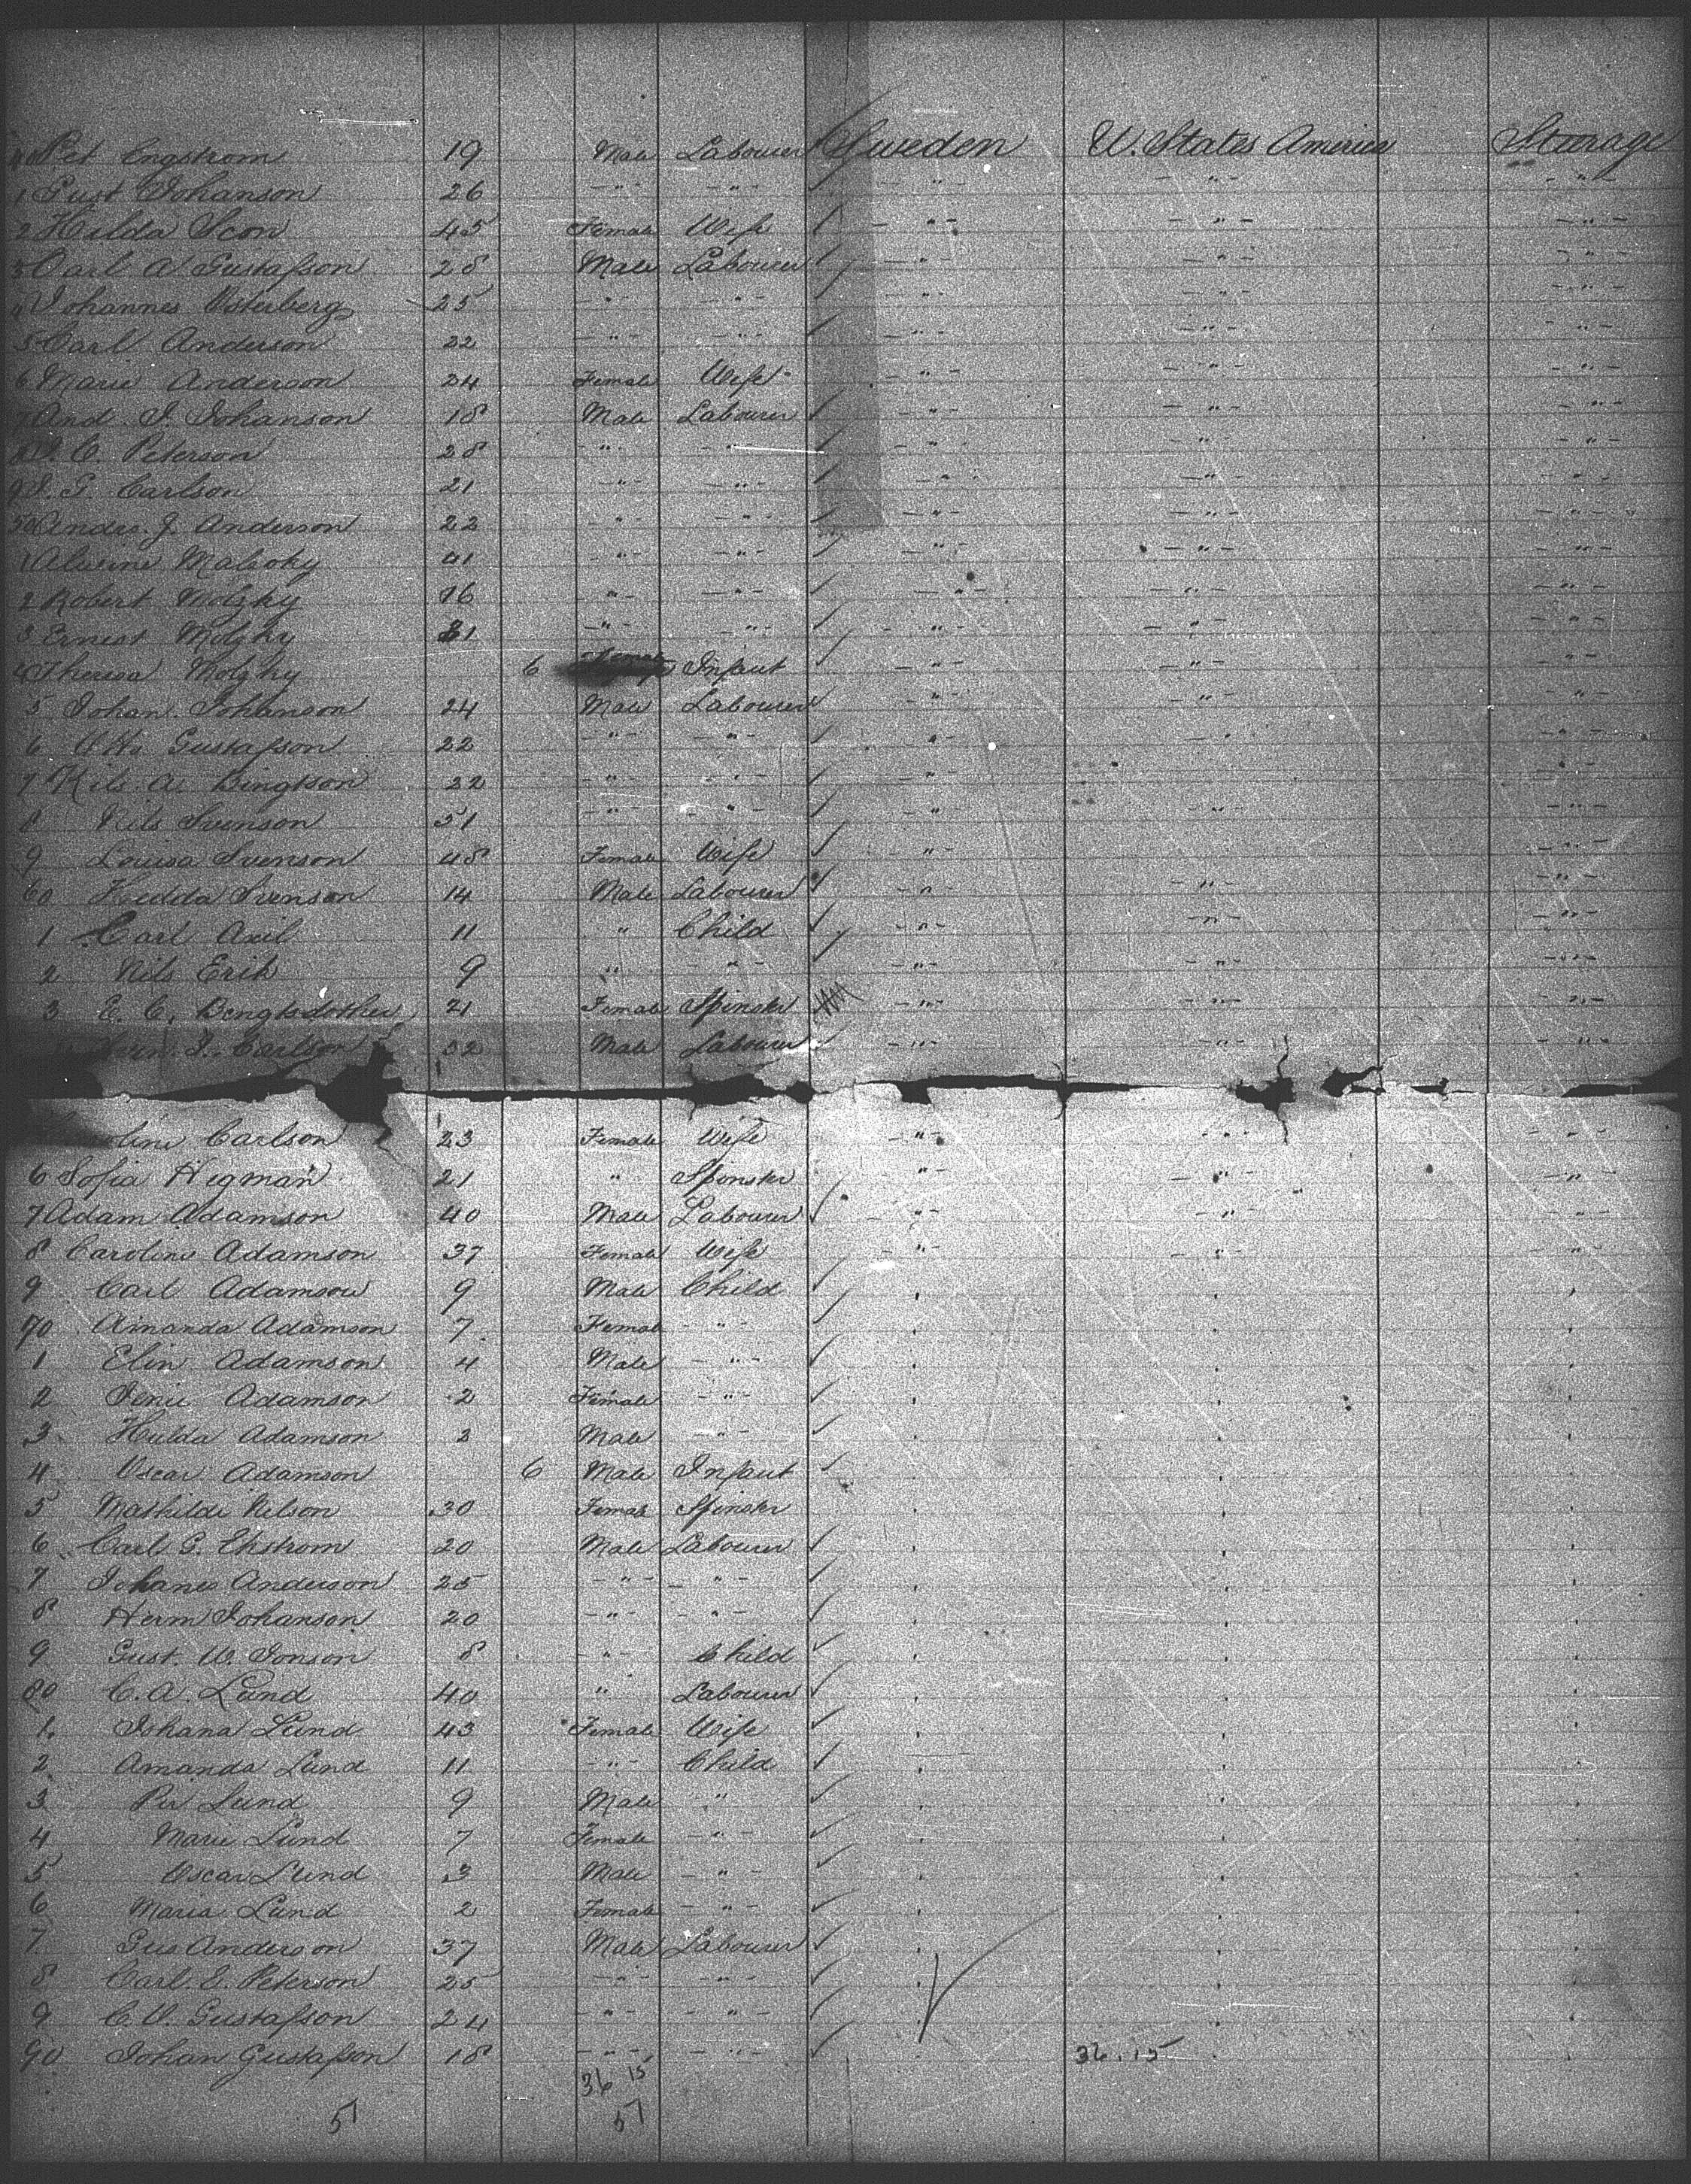 40 Pet Engstrom 19 Male Labourer Sweden U. States America Steerage
1 Gust Johanson 26 -"- -"- -"- -"- -"-
2 Hilda Scon 45 Female Wife -"- -"- -"-
3 Carl A Gustafson 28 Male Labourer -"- -"- -"-
4 Johannes Osterberg 25 -"- -"- -"- -"- -"-
5 Carl Anderson 22 -"- -"- -"- -"- -"-
6 Marie Anderson 24 Female Wife -"- -"- -"-
7 And. J. Johanson 18 Male Labourer -"- -"- -"-
8 C. Peterson 28 -"- -"- -"- -"- -"-
9 J. G. Carlson 21 -"- -"- -"- -"- -"-
50 Andrs. J. Anderson 22 -"- -"- -"- -"- -"-
1 41 -"- -"- -"- -"- -"-
2 Robert Molzky 16 -"- -"- -"- -"- -"-
3 Ernest Molzky -"- -"- -"- -"- -"-
4 Theresa Molzky 6 Female Infaut -"- -"- -"-
5 Johan Johanson 24 Male Labourer -"- -"- -"-
6 Gustafson 22 -"- -"- -"- -"- -"-
7 Nils. A. Bingtson 22 -"- -"- -"- -"-
8 Nils Svenson 51 -"- -"- -"- -"- -"-
9 Louisa Svenson 48 Female Wife -"- -"-
60 Hedda Svenson 14 Male Labourer -"- -"- -"-
1 Carl Axil 11 " Child -"- -"- -"-
2 Nils Erik 9 " -"- -"- -"- -"-
3 E. C. Bengtsdother 21 Female Spinster -"- -"- -"-
Herm. J. Carlson 32 Male Labourer -"- -"- -"-
line Carlson 23 Female Wife -"- -"- -"-
6 Sofia Hegman 21 " Spinster -"- -"- -"-
7 Adam Adamson 40 Male Labourer -"- -"- -"-
8 Caroline Adamson 37 Female Wife -"- -"- -"-
9 Carl Adamson 9 Male Child
70 Amanda Adamson 7 Female -"-
1 Elin Adamson 4 Male -"-
2 Jenie Adamson 2 Female -"-
3 Hulda Adamson 2 Male -"-
4 Oscar Adamson 6 Male Infaut
5 Mathilde Nelson 30 Female Spinster
6 Carl G. Ekstrom 20 Male Labourer
7 Johanes Anderson 25 -"- -"-
8 Herm Johanson 20 -"- -"-
9 Gust. W. Jonson 8 -"- Child
80 C. A. Lund 40 " Labourer
1 Johana Lund 43 Female Wife
2 Amanda Lund 11 -"- Child
3 Per Lund 9 Male "
4 Marie Lund 7 Female -"-
5 Oscar Lund 3 Male -"-
6 Maria Lund 2 Female -"-
7 Gus Anderson 37 Male Labourer
8 Carl. E. Peterson 25 -"- -"-
9 C. O. Gustafson 24 -"- -"-
90 Johan Gustafson 18 -"- -"- 36.15
36 15
51 51